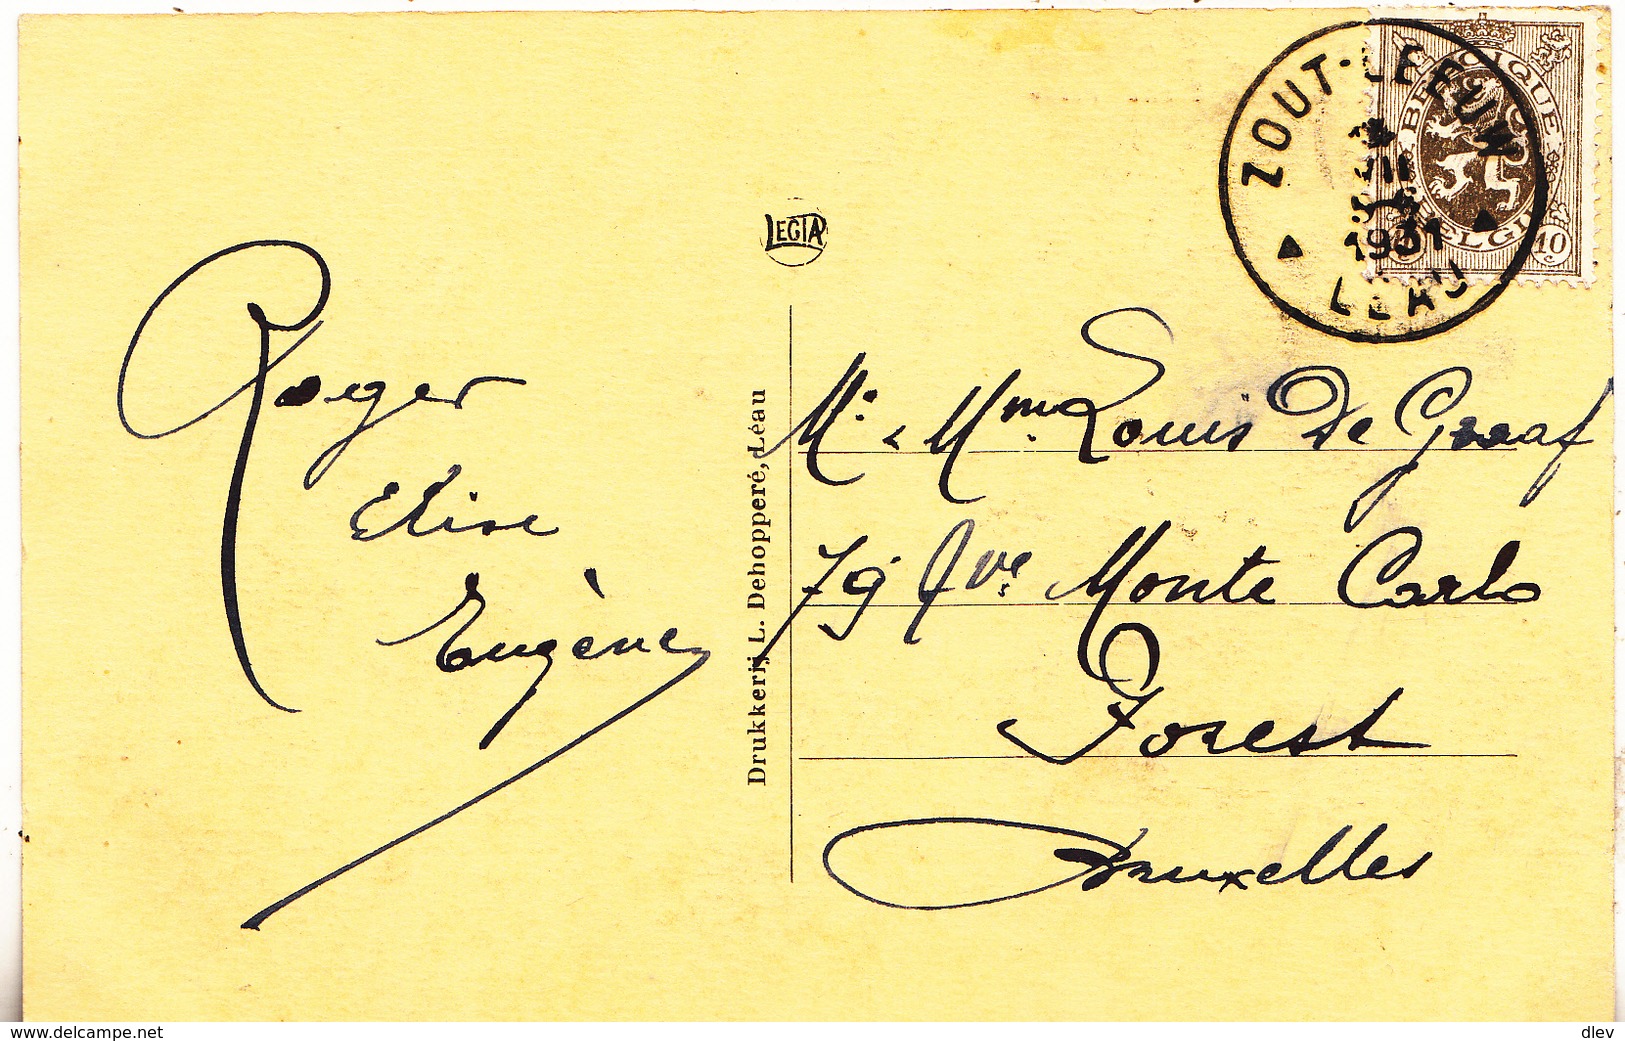 ZOUT-LEEUW
1931
LEAU
BELGIQUE
BELGIE
10 c
LEGIA
Roger
Elise
Eugène
Drukkerij L. Dehopperé, Léau
Mr & Mme. Louis De Graaf
79 Ave Monte Carlo
Forest
Bruxelles
www.delcampe.net
dlev